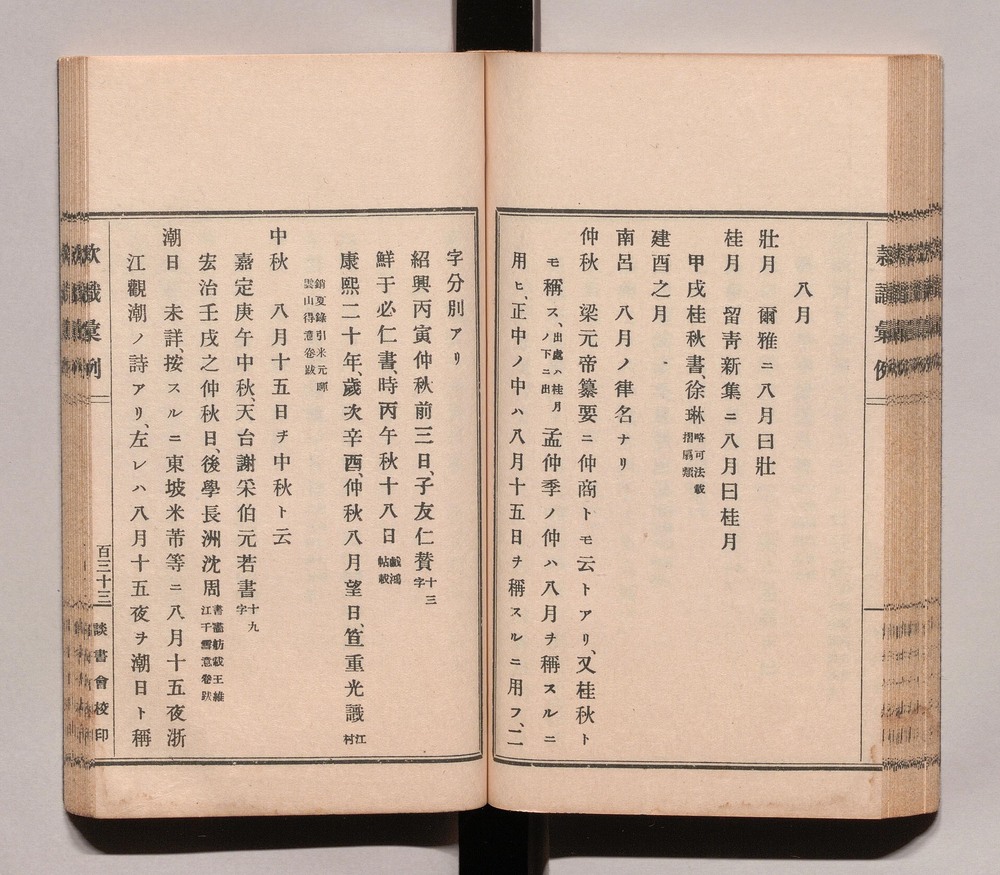 八月
壯月　爾雅ニ八月曰壯
桂月　留靑新集ニ八月曰桂月
甲戌桂秋書、徐琳 略可法載摺扇類
建酉之月
南呂　八月ノ律名ナリ
仲秋　梁元帝纂要ニ仲商トモ云トアリ、又桂秋ト
モ稱ス、出處ハ桂月ノ下ニ出 孟仲季ノ仲ハ八月ヲ稱スルニ
用ヒ、正中ノ中ハ八月十五日ヲ稱スルニ用フ、二
字分別アリ
紹興丙寅仲秋前三日、子友仁贊 十三字
鮮于必仁書、時丙午秋十八日 戱鴻帖載
康熙二十年、歲次辛酉、仲秋八月望日、笪重光識 江村
銷夏錄引米元暉雲山得意卷跋
中秋　八月十五日ヲ中秋ト云
嘉定庚午中秋、天台謝采伯元若書 十九字
宏治壬戌之仲秋日、後學長洲沈周 書畵舫載王維江干雪意卷跋
潮日　未詳、按スルニ東坡米芾等ニ八月十五夜浙
江觀潮ノ詩アリ、左レハ八月十五夜ヲ潮日ト稱
欵識彙例
百三十三
談書會校印